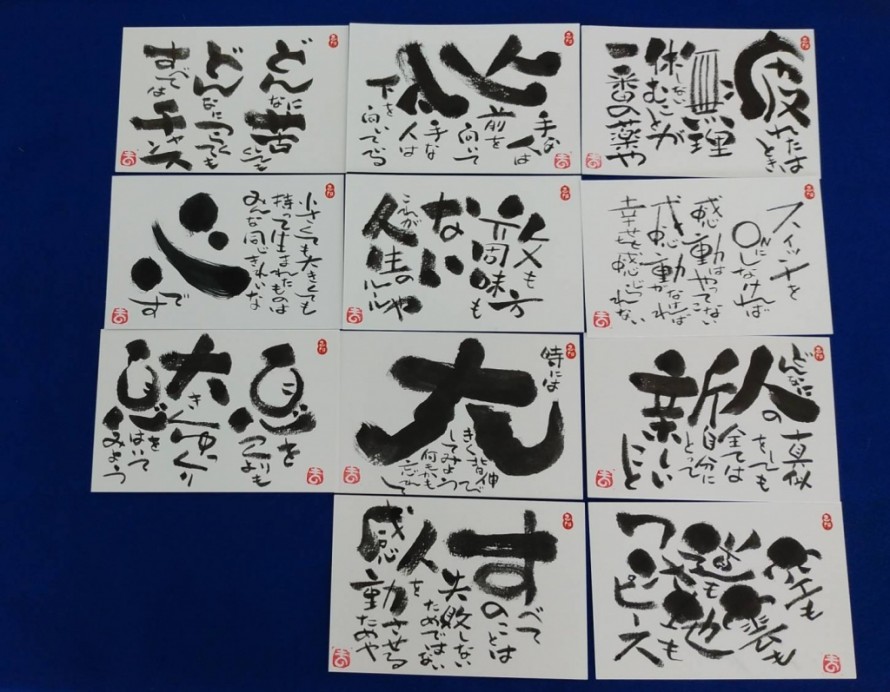 どんなに苦
どんなにつらくても
すべてはチャンス
手な人は
前を向いて
手な人は
下を向いてる
疲れたときは
無理しない
休むことが
一番の薬や
小さくても大きくても
持って生まれたものは
みんな同じきれいな
心
です
味も
ない
これが
人生のルールや
スイッチを
ONにしなければ
感動はやってこない
感動がなければ
幸せも感じられない
息を
よりも
大きくゆっくり
息をはいてみよう
時には
大
きく背伸び
してみよう
どんなに
人の真似をしても
全ては自分にとって
新しいこと
すべてのことは
失敗しないためではない
人を
感動させるためや
道も
地も
ピース